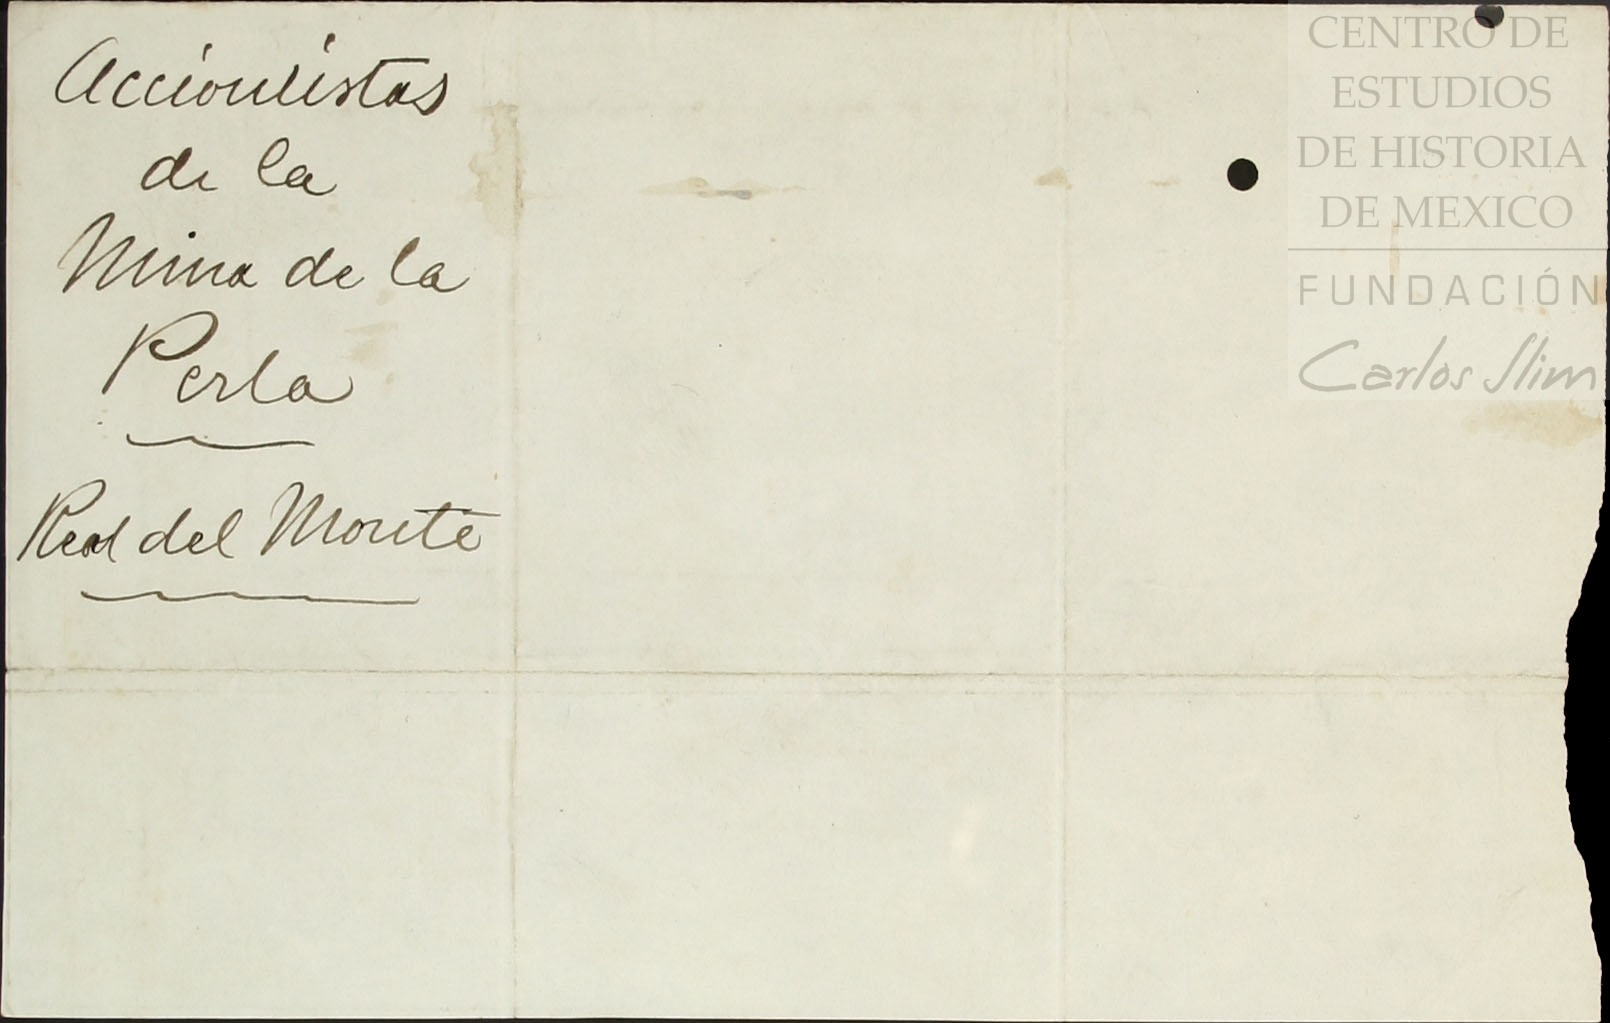 Accionistas
de la
Mina de la
Perla
Real del Monte
CENTRO DE
ESTUDIOS
DE HISTORIA
DE MEXICO
FUNDACIÓN
Carlos Slim